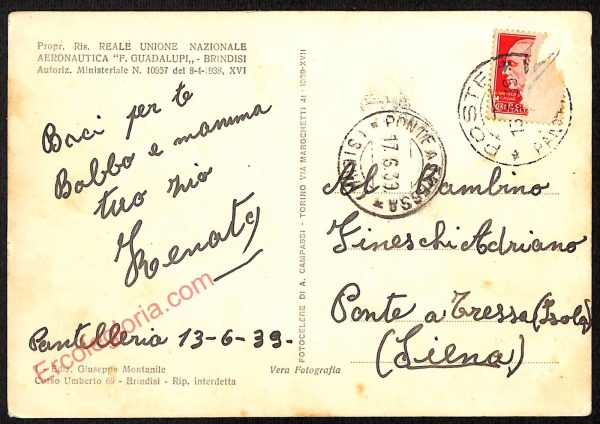 Propr. Ris. REALE UNIONE NAZIONALE
AERONAUTICA "F. GUADALUPI„ - BRINDISI
Autoriz. Ministeriale N. 10957 del 8-4-1938, XVI
Baci per te
Babbo e mamma
tuo zio
Renato
Pantelleria 13-6-39-
Ediz. Giuseppe Montanile
Corso Umberto 69 - Brindisi - Rip. interdetta
Vera Fotografia
FOTOCELERE DI A. CAMPASSI - TORINO VIA MAROCHETTI 41 - 1939-XVII
PONTE A TRESSA
17.6.39
POSTE
Al Bambino
Fineschi Adriano
Ponte a Tressa (Isola)
(Siena)
Ercolegloria.com